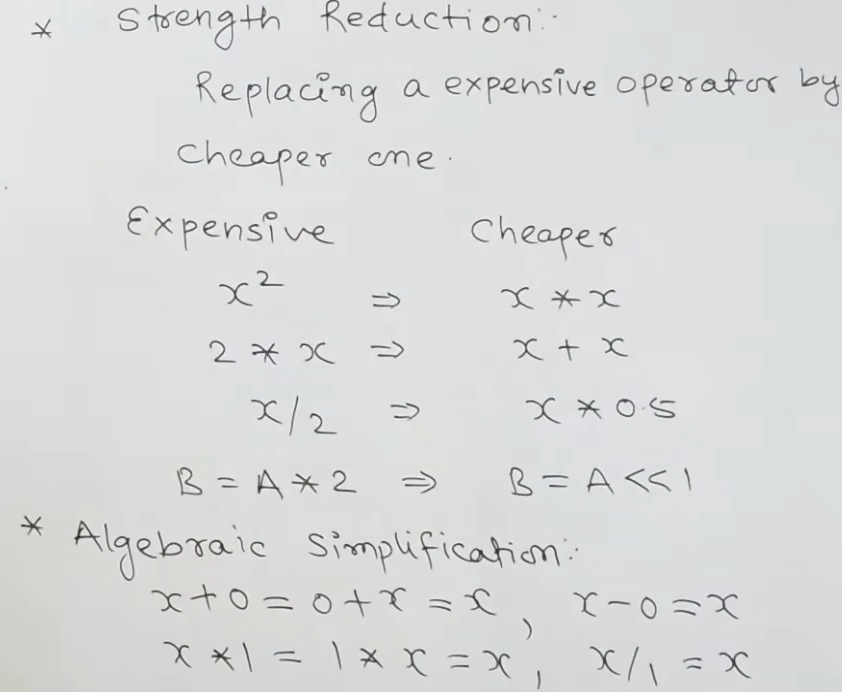 * Strength Reduction:-
Replacing a expensive operator by
cheaper one.
Expensive Cheaper
x² ⇒ x * x
2 * x ⇒ x + x
x/2 ⇒ x * 0.5
B = A * 2 ⇒ B = A << 1
* Algebraic Simplification:-
x+0 = 0+x = x, x-0 = x
x * 1 = 1 * x = x, x/1 = x